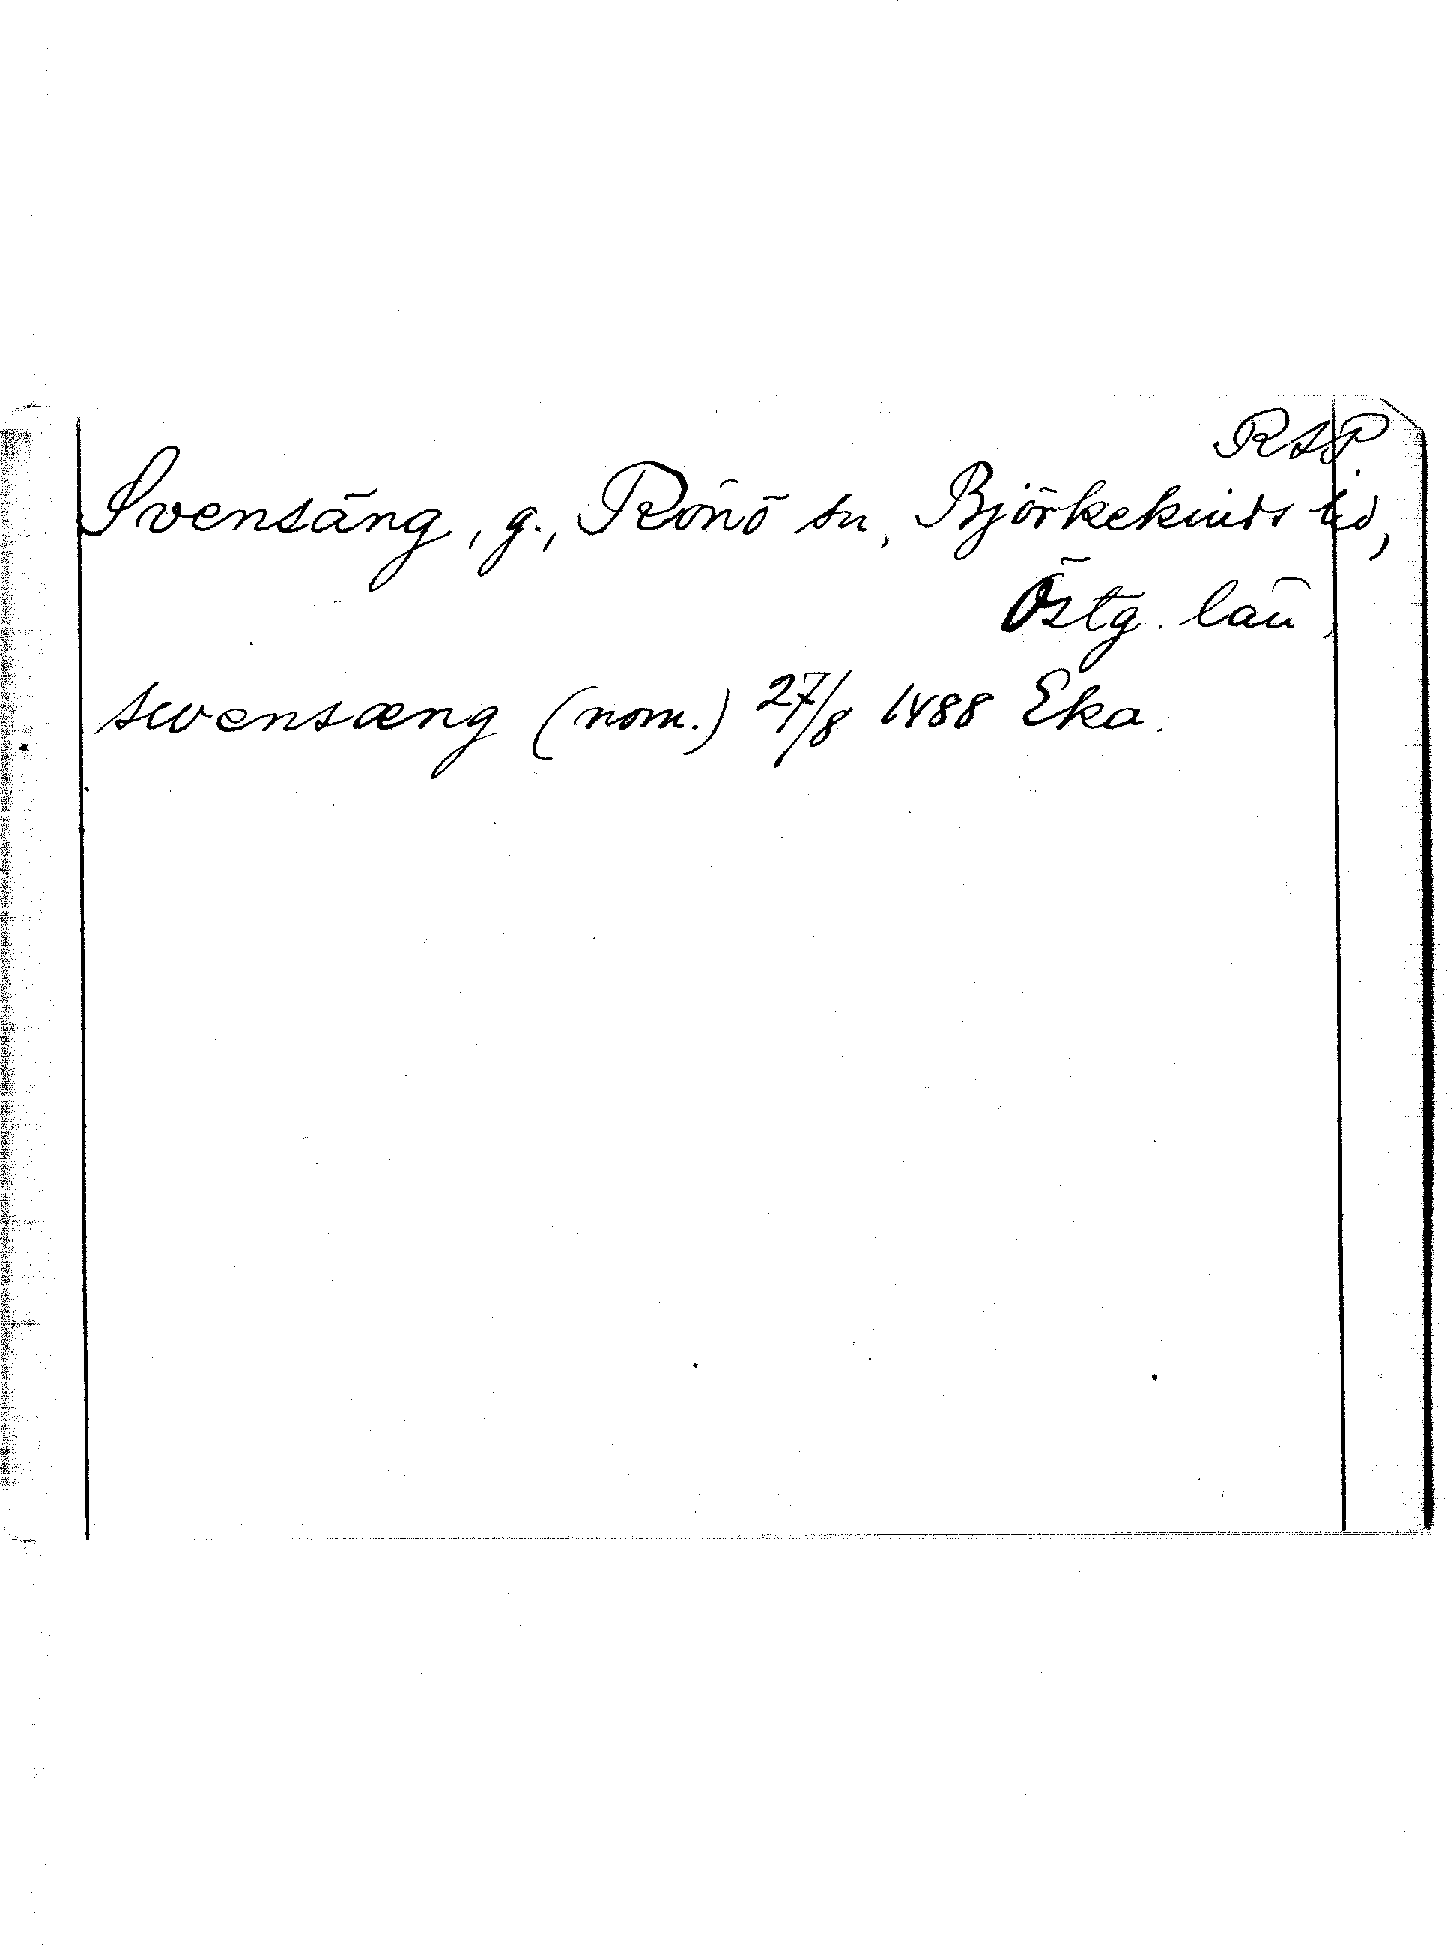 RAP
Svensäng, g., Rönö sn, Björkekinds hd,
Östg. län,
swensæng (nom.) 27/8 1488 Eka.